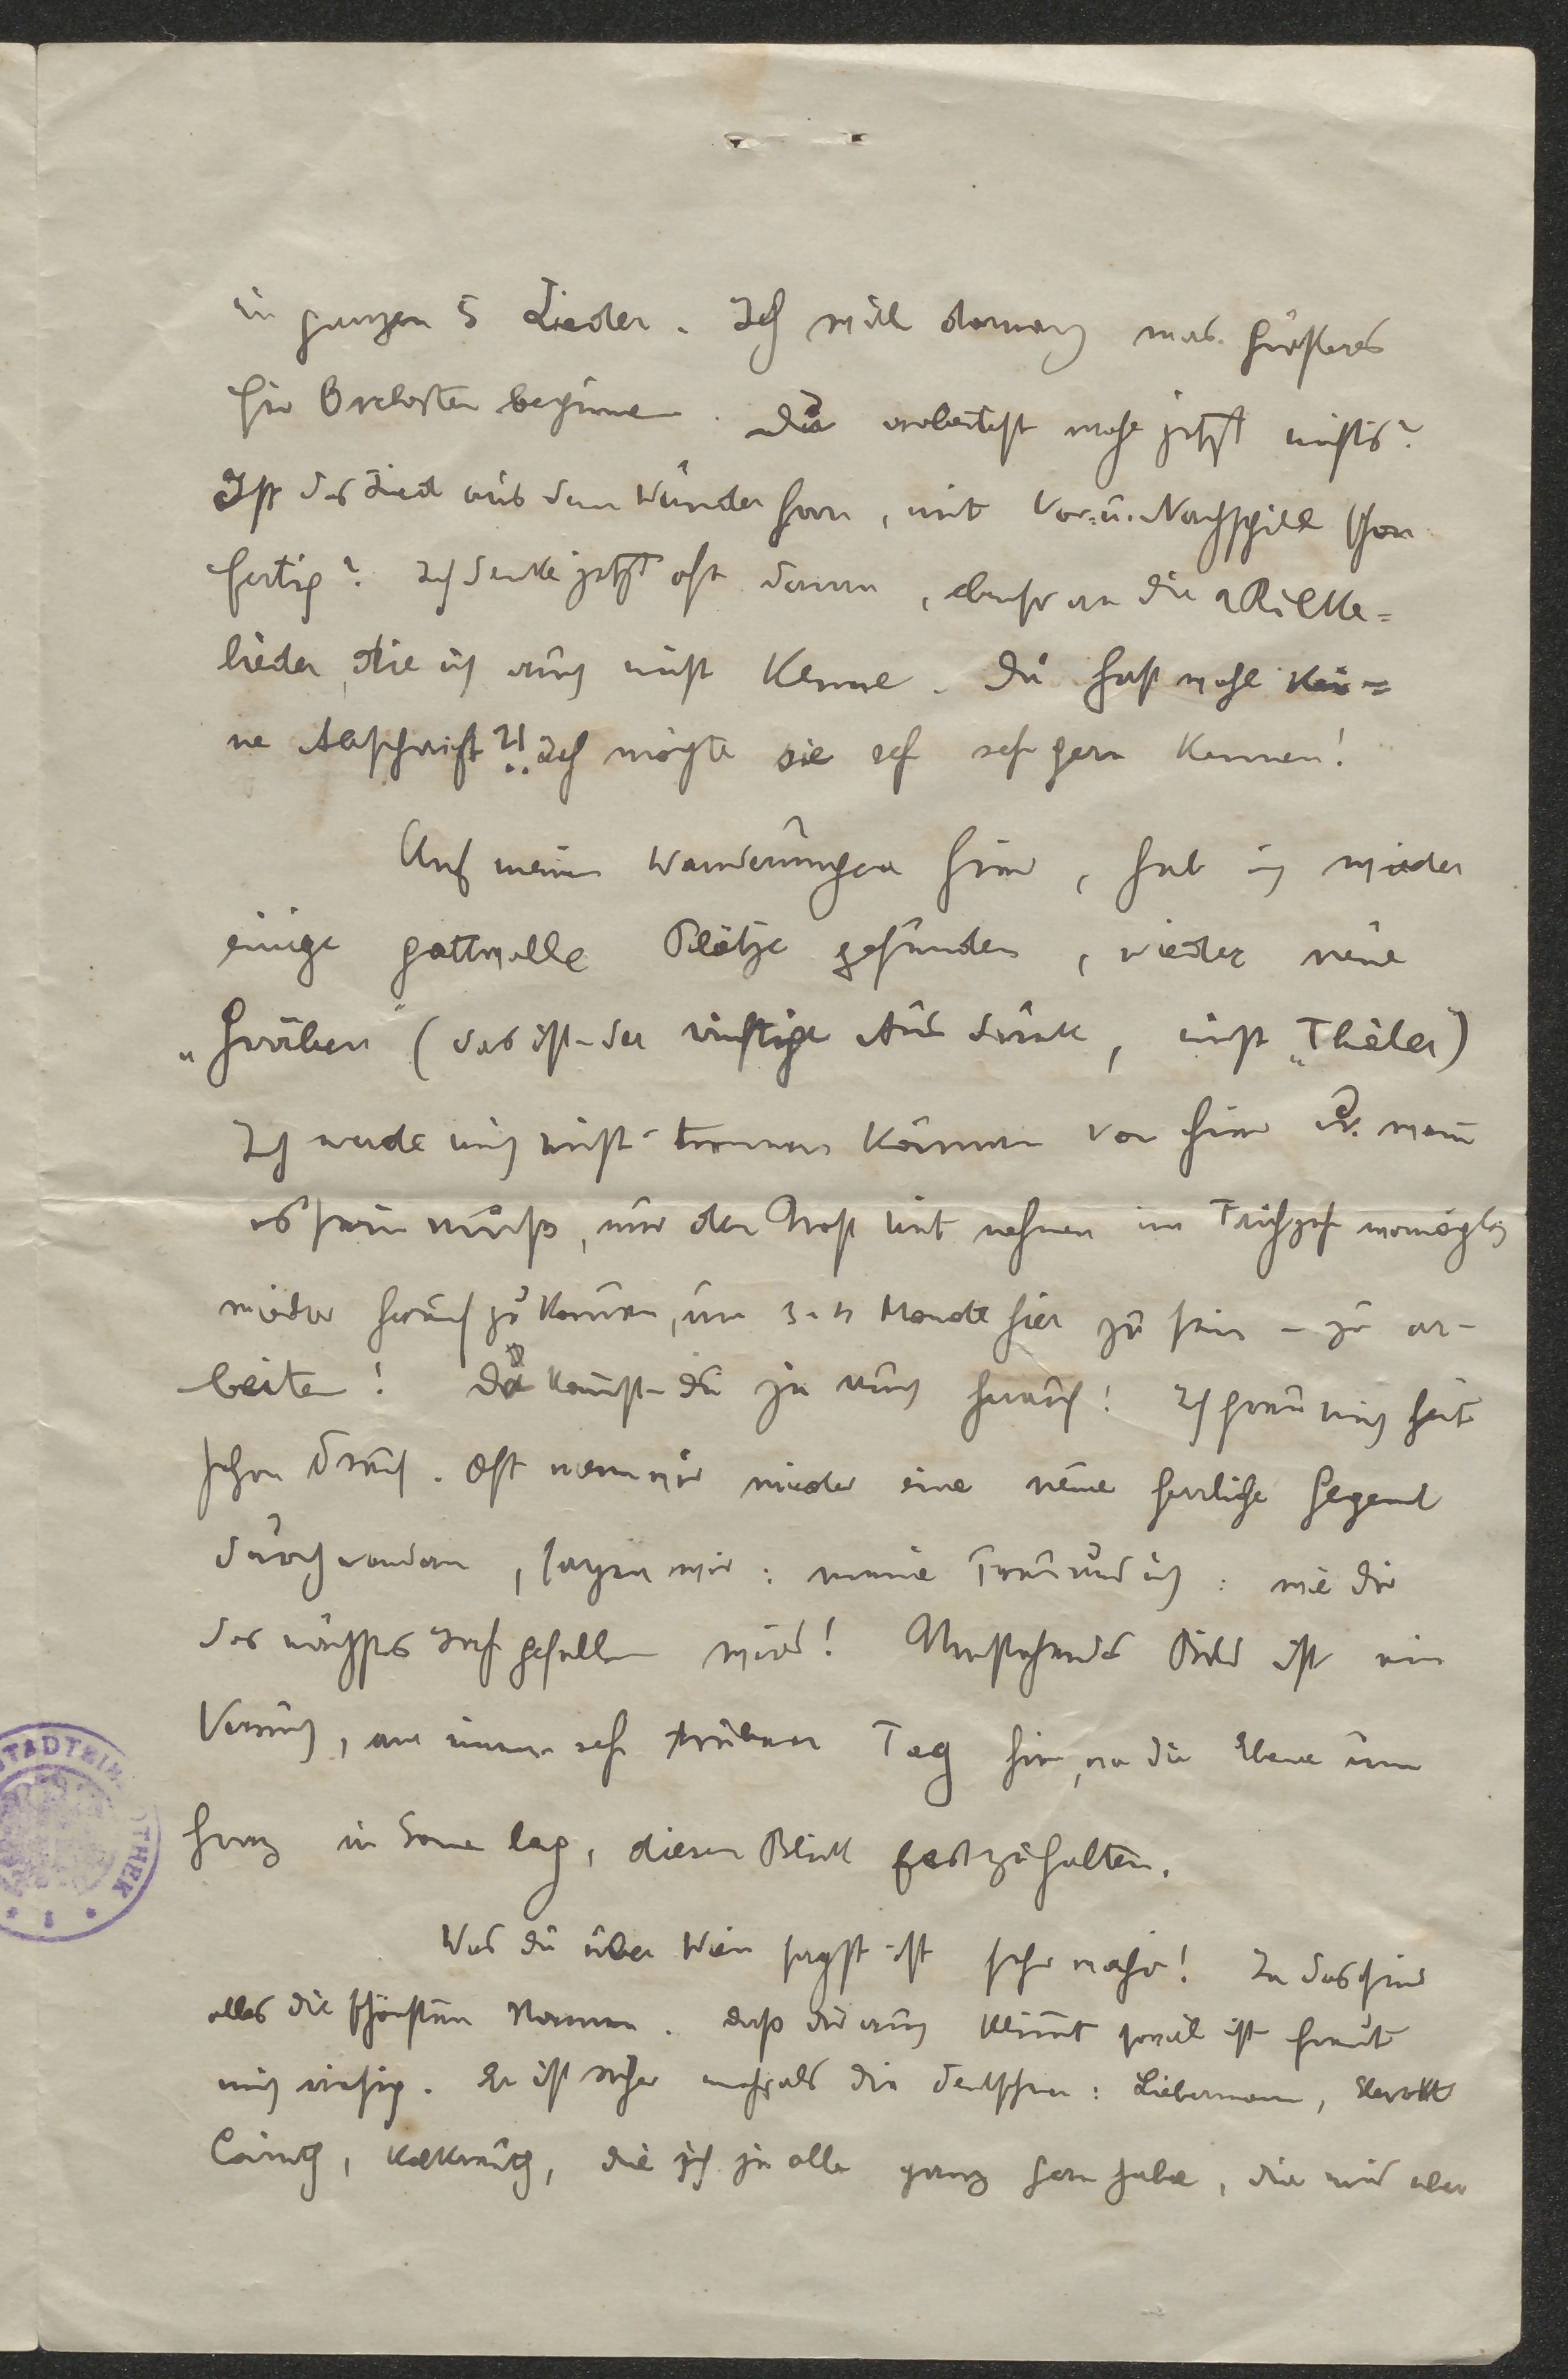 im ganzen 5 Lieder. Ich will darnach was Größeres
für Orchester beginnen. Du arbeitest wohl jetzt nichts?
Ist das Lied aus dem Wunderhorn, mit Vor- u. Nachspiel schon
fertig? Ich denke jetzt oft daran, ebenso an die Rilke=
lieder, die ich auch nicht kenne. Du hast wohl kei=
ne Abschrift?! Ich möchte sie sehr sehr gern kennen!
Auf meinen Wanderungen hier, hab ich wieder
einige gottvolle Plätze gefunden, wieder neue
„Gräben" (das ist der richtige Ausdruck, nicht „Thäler)
Ich werde mich nicht trennen können von hier u. wenn
es sein muß, nur den Trost mit nehmen im Frühjahr womöglich
wieder herauf zu kommen, um 3-4 Monate hier zu sein – zu ar-
beiten! Da kommst du zu uns herauf! Ich freu mich heut
schon drauf. Oft wenn wir wieder eine neue herrliche Gegend
durchwandern, sagen wir: meine Frau und ich: wie dir
das nächstes Jahr gefallen wird! Umstehendes Bild ist ein
Versuch, an einem sehr trüben Tag hier, wo die Ebene um
Graz in Sonne lag, diesen Blick festzuhalten.
Was du über Wien sagst ist sehr wahr! Ja das sind
alles die schönsten Namen. Daß dir auch Klimt soviel ist freut
mich riesig. Er ist sicher mehr als die Deutschen: Liebermann,
Corinth, Kalkreuth, die ich ja alle ganz gern habe, die mir aber
STADTBIBLIOTHEK